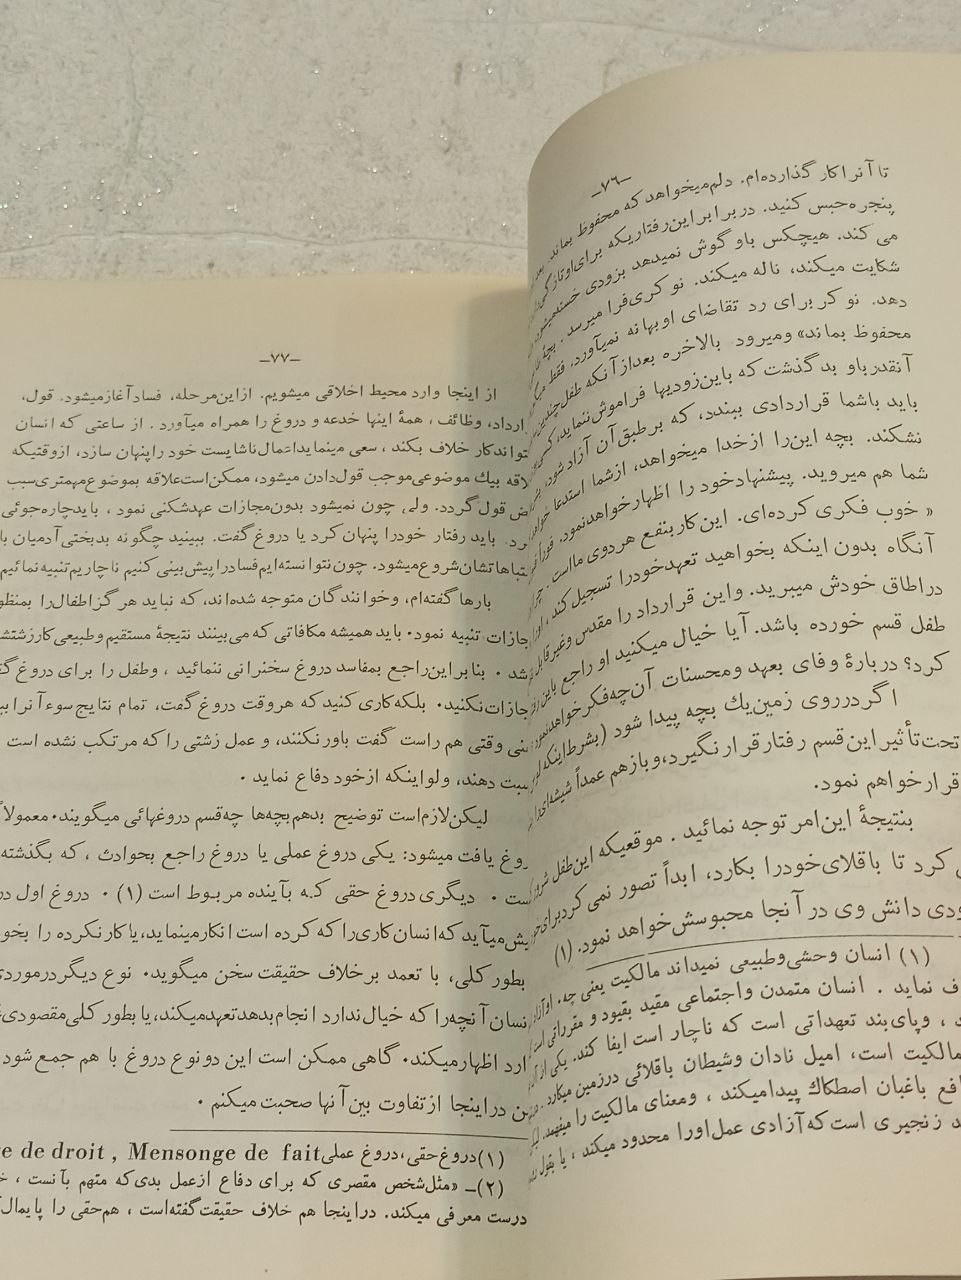 –۷۶–
تا آنرا کار گذارده‌ام. دلم‌میخواهد که محفوظ بماند.
پنجره‌حبس کنید. در برابر این‌رفتاریکه برای‌او تازگی
می کند. هیچکس باو گوش نمیدهد بزودی خسته‌میشود،
شکایت میکند، ناله میکند. نو کری‌فرا میرسد . بچه
دهد. نو کر برای رد تقاضای او بهانه نمیآورد، فقط
محفوظ بماند» ومیرود. بالاخره بعدازآنکه طفل
آنقدر باو بد گذشت که باین‌زودیها فراموش‌ننماید،
باید باشما قراردادی ببندد، که بر طبق آن آزاد شود،
نشکند. بچه این‌را ازخدا میخواهد، ازشما استدعا
شما هم میروید. پیشنهادخود را اظهارخواهدنمود.
« خوب فکری کرده‌ای. این‌کار بنفع هردوی مااست.
آنگاه بدون اینکه بخواهید تعهدخودرا تسجیل کند،
دراطاق خودش میبرید. واین قرارداد را مقدس وغیرقابل
طفل قسم خورده باشد. آیا خیال میکنید او راجع باین
کرد؟ دربارهٔ وفای بعهد ومحسنات آن‌چه‌فکرخواهدنمود؟
اگردرروی زمین‌یك بچه پیدا شود (بشرط‌اینکه
تحت‌تأثیراین‌قسم رفتارقرارنگیرد،وبازهم عمداً شیشه‌ای‌را
قرارخواهم نمود.
بنتیجهٔ این‌امر توجه نمائید . موقعیکه این‌طفل
کرد تا باقلای‌خودرا بکارد، ابداً تصور نمی کرد
ودی دانش وی در آنجا محبوسش‌خواهد نمود. (۱)
(۱) انسان وحشی‌وطبیعی نمیداند مالکیت یعنی چه.
ف نماید . انسان متمدن واجتماعی مقید بقیود و مقرراتی
، وپای‌بند تعهداتی است که ناچار است ایفا کند.
مالکیت است، امیل نادان وشیطان باقلائی درزمین میکارد
افع باغبان اصطکاك پیدامیکند ، ومعنای مالکیت را میفهمد.
زنجیری است که‌آزادی عمل‌اورا محدود میکند ، یا بقول
–۷۷–
از اینجا وارد محیط اخلاقی میشویم. ازاین‌مرحله، فسادآغازمیشود. قول،
رارداد، وظائف ، همهٔ اینها خدعه و دروغ را همراه میآورد . از ساعتی که انسان
تواند‌کار خلاف بکند ، سعی مینمایداعمال‌ناشایست خود راپنهان سازد، ازوقتیکه
لاقه بیك موضوعی‌موجب قول‌دادن میشود، ممکن‌است‌علاقه بموضوع‌مهمتری‌سبب
قض قول گردد. ولی چون نمیشود بدون‌مجازات عهدشکنی نمود ، بایدچاره‌جوئی
کرد. باید رفتار خودرا پنهان کرد یا دروغ گفت. ببینید چگونه بدبختی‌آدمیان با
شتباهاتشان‌شروع‌میشود. چون‌نتوانسته‌ایم‌فسادرا‌پیش‌بینی کنیم ناچاریم‌تنبیه‌نمائیم
بارها گفته‌ام، وخوانندگان متوجه شده‌اند، که نباید هرگزاطفال‌را بمنظو
جازات تنبیه نمود. باید همیشه مکافاتی که می‌بینند نتیجهٔ مستقیم‌وطبیعی‌کارزشتش
شد . بنابراین‌راجع بمفاسد دروغ سخنرانی ننمائید ، وطفل را برای دروغ
جازات‌نکنید. بلکه‌کاری کنید که هروقت دروغ گفت، تمام نتایج سوءآنراببی
نی وقتی هم راست گفت باورنکنند، و عمل زشتی را که مرتکب نشده است
سبت دهند، ولواینکه ازخود دفاع نماید .
لیکن‌لازم‌است توضیح بدهم‌بچه‌ها چه‌قسم دروغهائی میگویند. معمولاً
روغ یافت میشود: یکی دروغ عملی یا دروغ راجع بحوادث ، که بگذشته
ست . دیگری دروغ حقی که بآینده مربوط است (۱) . دروغ اول در
یش‌میآید که‌انسان‌کاری‌را که کرده است‌انکارمینماید،یاکارنکرده را بخو
بطور کلی، با تعمد برخلاف حقیقت سخن میگوید. نوع دیگردرموردی
نسان آنچه‌را که خیال‌ندارد انجام‌بدهدتعهدمیکند،یا بطور کلی‌مقصودی
ارد اظهارمیکند. گاهی ممکن است این دونوع دروغ با هم جمع شود
من دراینجا ازتفاوت بین آنها صحبت میکنم .
(۱)دروغ‌حقی،دروغ عملیe de droit , Mensonge de fait
(۲)– «مثل‌شخص مقصری که برای دفاع ازعمل بدی‌که متهم بآنست ،
درست معرفی میکند. دراینجا هم خلاف حقیقت‌گفته‌است ، هم‌حقی را پایمال